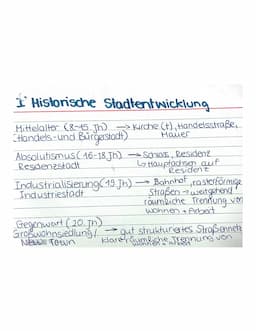 I Historische Stadtentwicklung
Mittelalter (8-15. Jh) → Kirche (†), Handelsstraße,
(Handels- und Bürgerstadt) Mauer
Absolutismus (16-18. Jh) → Schloss, Residenz
Residenzstadt ↳ Hauptachsen auf
Residenz
Industrialisierung (19. Jh) → Bahnhof, rasterförmige
Industriestadt Straßen → weitgehend
räumliche Trennung von
wohnen + Arbeit
Gegenwart (20. Jh)
Großwohnsiedlung / → gut strukturiertes Straßennetz
Town klare räumliche Trennung von
wohnen + Arbeit